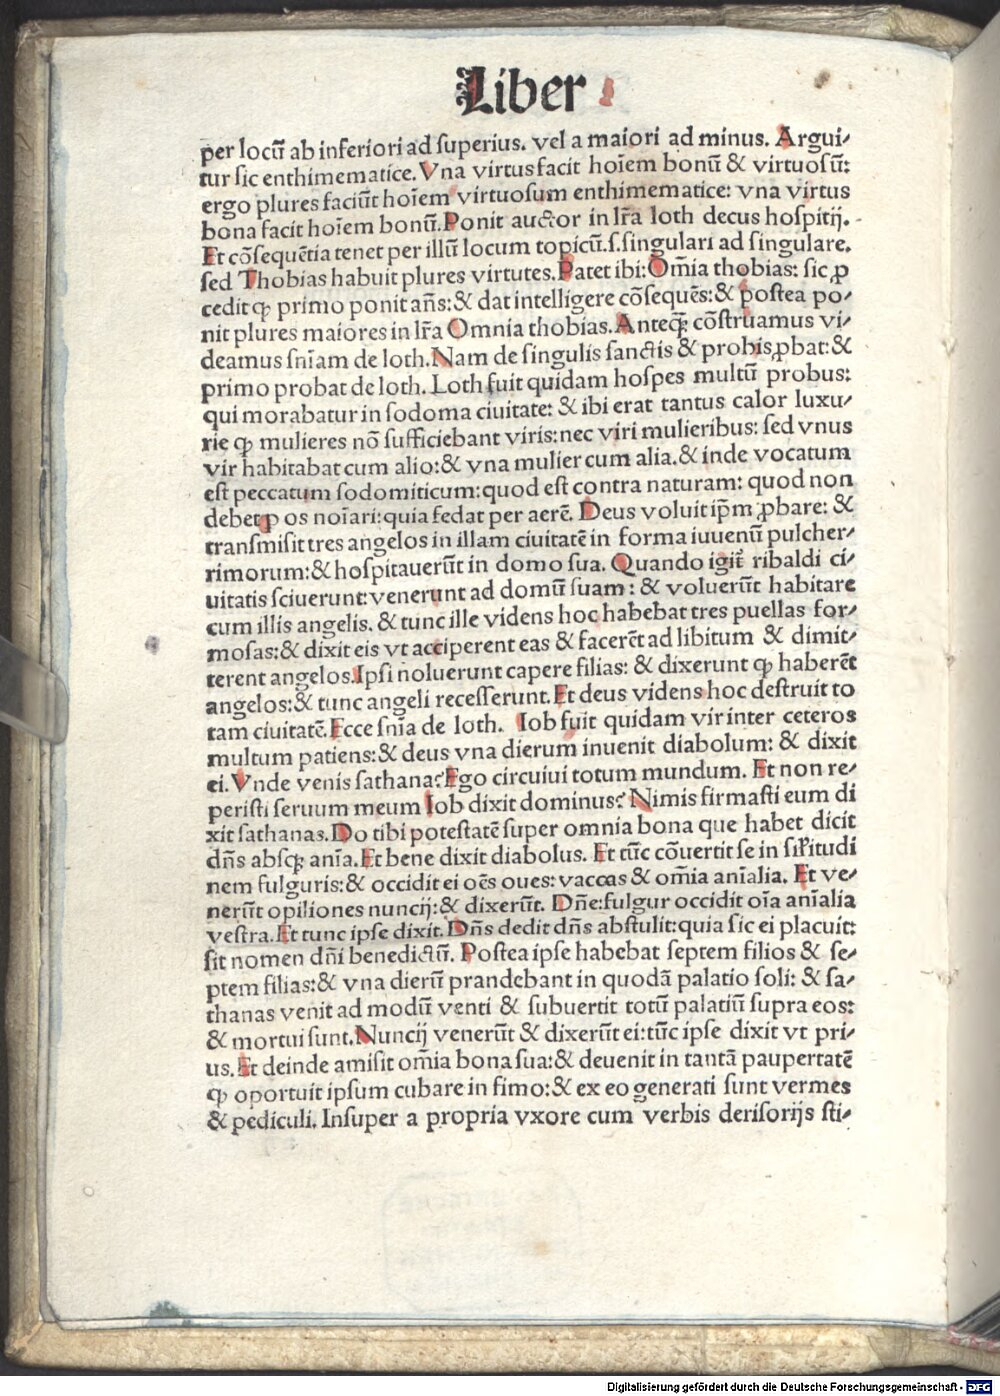 Liber
per locū ab inferiori ad superius. vel a maiori ad minus. Argui/
tur sic enthimematice. Vna virtus facit hoīem bonū & virtuosū:
ergo plures faciūt hoīem virtuosum enthimematice: vna virtus
bona facit hoīem bonū. Ponit auctor in lr̄a loth decus hospitij.
Et cōsequētia tenet per illū locum topicū.s.singulari ad singulare.
sed Thobias habuit plures virtutes. Patet ibi: Om̄ia thobias: sic ꝓ
cedit ꝙ primo ponit an̄s: & dat intelligere cōsequēs: & postea po/
nit plures maiores in lr̄a Omnia thobias. Anteqꝫ cōstruamus vi/
deamus sn̄iam de loth. Nam de singulis sanctis & probis ꝓbat: &
primo probat de loth. Loth fuit quidam hospes multū probus:
qui morabatur in sodoma ciuitate: & ibi erat tantus calor luxu/
rie ꝙ mulieres nō sufficiebant viris: nec viri mulieribus: sed vnus
vir habitabat cum alio: & vna mulier cum alia. & inde vocatum
est peccatum sodomiticum: quod est contra naturam: quod non
debet ꝑ os noīari: quia fedat per aerē. Deus voluit ip̄m ꝓbare: &
transmisit tres angelos in illam ciuitatē in forma iuuenū pulcher/
rimorum: & hospitauerūt in domo sua. Quando igit̄ ribaldi ci/
uitatis sciuerunt: venerunt ad domū suam: & voluerūt habitare
cum illis angelis. & tunc ille videns hoc habebat tres puellas for/
mosas: & dixit eis vt acciperent eas & facerēt ad libitum & dimit/
terent angelos. Ipsi noluerunt capere filias: & dixerunt ꝙ haberēt
angelos: & tunc angeli recesserunt. Et deus videns hoc destruit to
tam ciuitatē. Ecce sn̄ia de loth. Iob fuit quidam vir inter ceteros
multum patiens: & deus vna dierum inuenit diabolum: & dixit
ei. Vnde venis sathana? Ego circuiui totum mundum. Et non re/
peristi seruum meum Iob dixit dominus? Nimis firmasti eum di
xit sathanas. Do tibi potestatē super omnia bona que habet dicit
dn̄s absqꝫ an̄ia. Et bene dixit diabolus. Et tūc cōuertit se in sil̄itudi
nem fulguris: & occidit ei oēs oues: vaccas & om̄ia an̄ialia. Et ve/
nerūt opiliones nuncij: & dixerūt. Dn̄e: fulgur occidit oīa an̄ialia
vestra. Et tunc ipse dixit. Dn̄s dedit dn̄s abstulit: quia sic ei placuit:
sit nomen dn̄i benedictū. Postea ipse habebat septem filios & se/
ptem filias: & vna dierū prandebant in quodā palatio soli: & sa/
thanas venit ad modū venti & subuertit totū palatiū supra eos:
& mortui sunt. Nuncij venerūt & dixerūt ei: tūc ipse dixit vt pri/
us. Et deinde amisit om̄ia bona sua: & deuenit in tantā paupertatē
ꝙ oportuit ipsum cubare in fimo: & ex eo generati sunt vermes
& pediculi. Insuper a propria vxore cum verbis derisorijs sti/
Digitalisierung gefördert durch die Deutsche Forschungsgemeinschaft - DFG